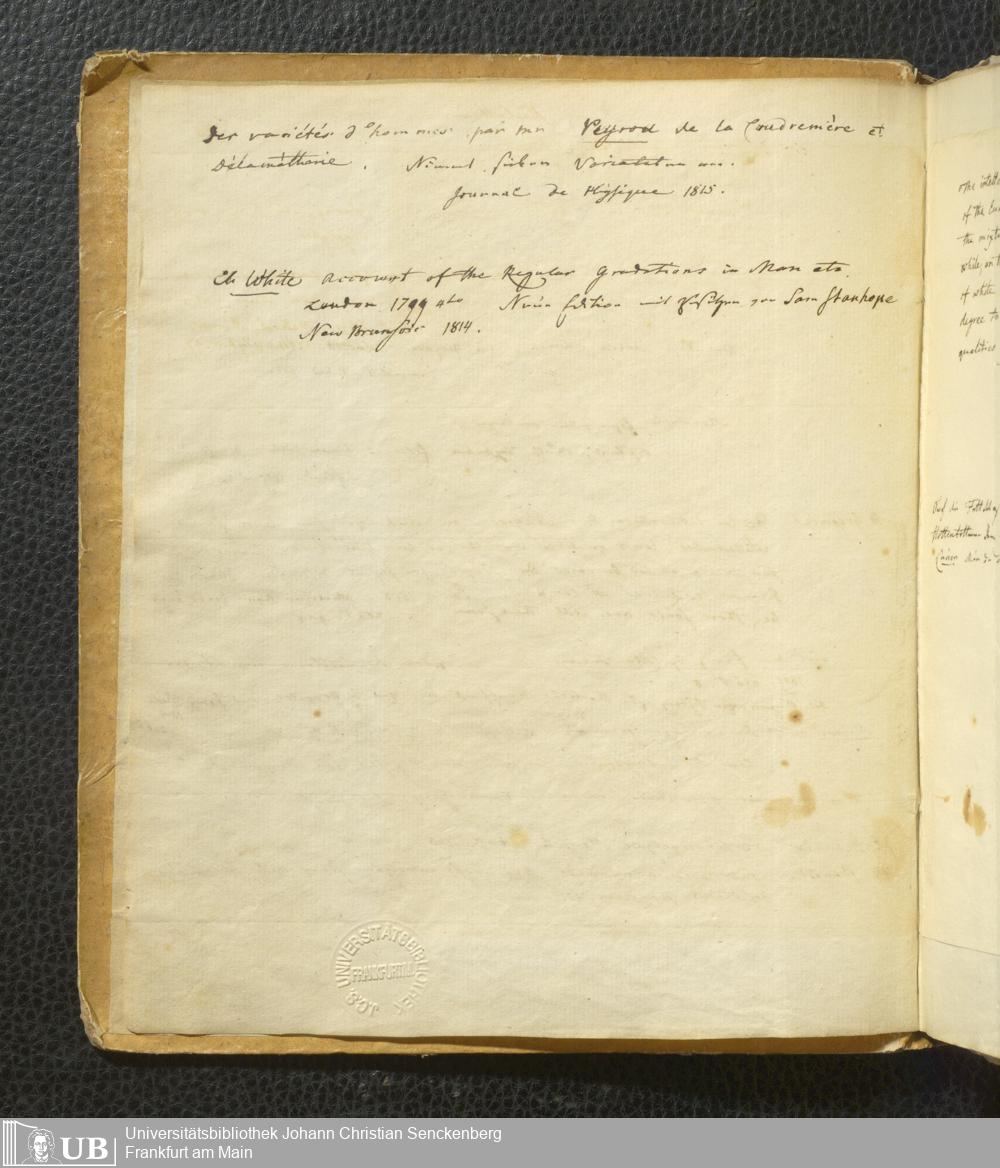 Des variétés d'hommes par mr Peyrod de la Coudremère et
Délamétherie. Nimmt sieben Varietäten an.
Journal de Physique 1815.
Ch White account of the Regular Gradations in Man etc.
London 1799 4to Neue Edition mit Zusätzen von Sam Stanhope
New Brunswic 1814.
the intell
of the Eu
the mixtu
while, on t
of white
degree to
qualities
Auf die
Hottentottinnen
Cuvier
UNIVERSITÄTSBIBLIOTHEK J.C.S.
FRANKFURT/M.
UB
Universitätsbibliothek Johann Christian Senckenberg
Frankfurt am Main